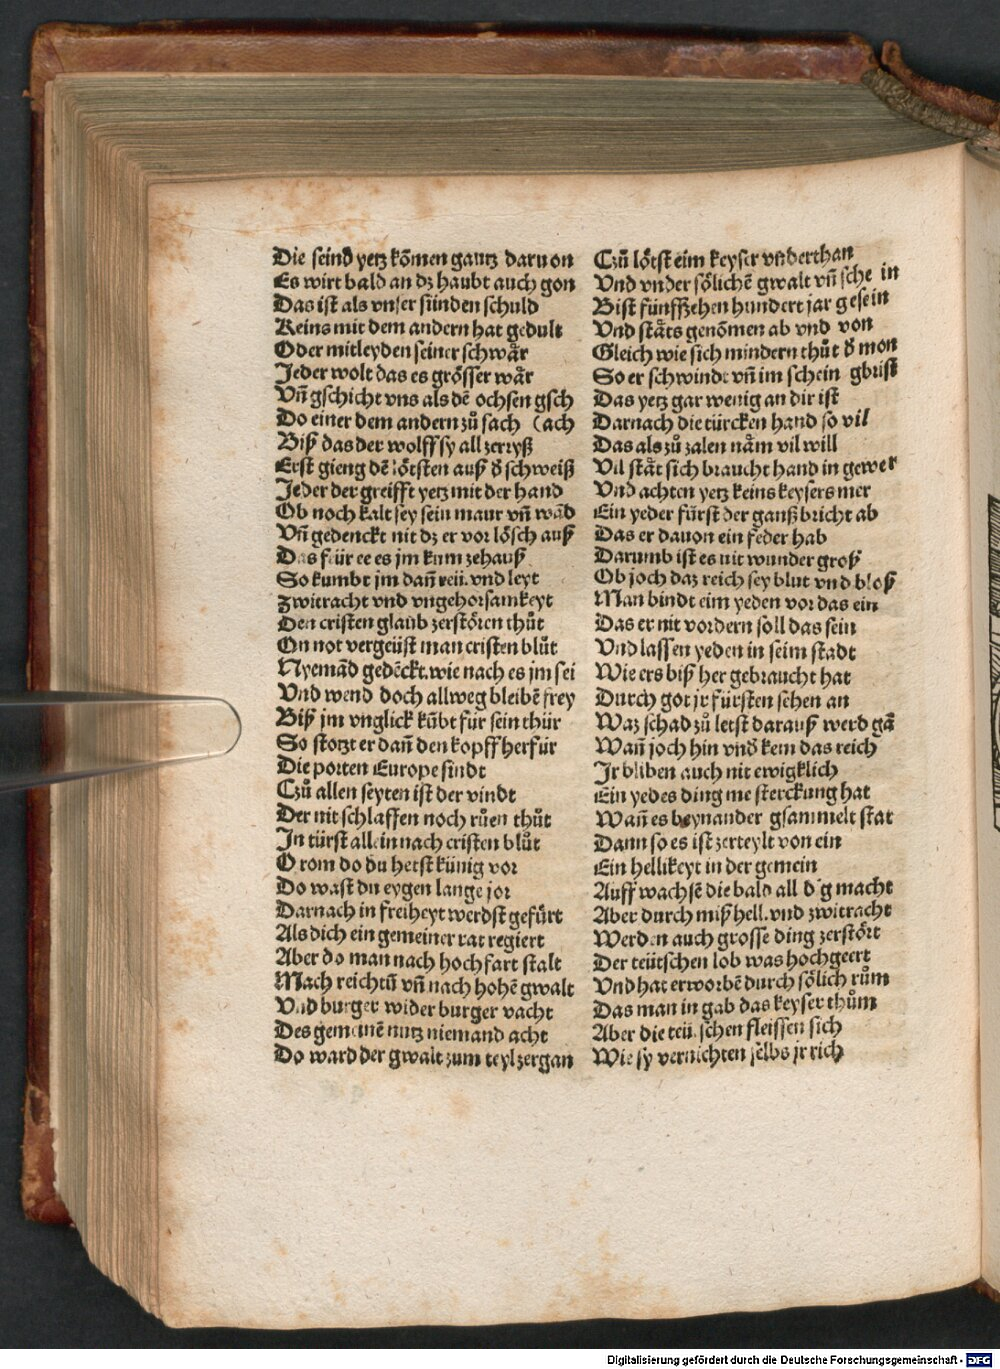 Die seind yetz kõmen gantz daruon
Es wirt bald an dz haubt auch gon
Das ist als vnser sünden schuld
Keins mit dem andern hat gedult
Oder mitleyden seiner schwår
Jeder wolt das es grösser wår
Vñ gschicht vns als dẽ ochsen gsch
Do einer dem andern zů sach (ach
Biß das der wolff sy all zerryß
Erst gieng dẽ lötsten auß d̕ schweiß
Jeder der greifft yetz mit der hand
Ob noch kalt sey sein maur vñ wãd
Vñ gedenckt nit dz er vor lösch auß
Das für ee es jm kum zehauß
So kumbt jm dañ reü. vnd leyt
Zwitracht vnd vngehorsamkeyt
Den cristen glaub zerstören thůt
On not vergeüst man cristen blůt
Nyemãd gedẽckt. wie nach es jm sei
Vnd wend doch allweg bleibẽ frey
Biß jm vnglick kũbt für sein thür
So stotzt er dañ den kopff herfür
Die porten Europe sindt
Czů allen seyten ist der vindt
Der nit schlaffen noch růen thůt
Jn türst allein nach cristen blůt
O rom do du hetst künig vor
Do wast du eygen lange jor
Darnach in freiheyt werdst gefürt
Als dich ein gemeiner rat regiert
Aber do man nach hochfart stalt
Nach reichtũ vñ nach hohẽ gwalt
Vnd burger wider burger vacht
Des gemeinẽ nutz niemand acht
Do ward der gwalt zum teyl zergan
Czů lötst eim keyser vnderthan
Vnd vnder sölichẽ gwalt vñ sche in
Bist fünffzehen hundert jar gesein
Vnd ståts genõmen ab vnd von
Gleich wie sich mindern thůt d̕ mon
So er schwindt vñ im schein gbrist
Das yetz gar wenig an dir ist
Darnach die türcken hand so vil
Das als zů zalen nåm vil will
Vil ståt sich braucht hand in gewer
Vnd achten yetz keins keysers mer
Ein yeder fürst der ganß bricht ab
Das er dauon ein feder hab
Darumb ist es nit wunder groß
Ob joch daz reich sey blut vnd bloß
Man bindt eim yeden vor das ein
Das er nit vordern soll das sein
Vnd lassen yeden in seim stadt
Wie ers biß her gebraucht hat
Durch got jr fürsten sehen an
Waz schad zů letst darauß werd gã
Wañ joch hin vnd̕ kem das reich
Jr bliben auch nit ewigklich
Ein yedes ding me sterckung hat
Wañ es beynander gsammelt stat
Dann so es ist zerteylt von ein
Ein hellikeyt in der gemein
Auff wachsẽ die bald all d̕ig macht
Aber durch mißhell. vnd zwitracht
Werden auch grosse ding zerstört
Der teütschen lob was hochgeert
Vnd hat erworbẽ durch sölich rům
Das man in gab das keyserthům
Aber die teütschen fleissen sich
Wie sy vernichten selbs jr rich
Digitalisierung gefördert durch die Deutsche Forschungsgemeinschaft - DFG